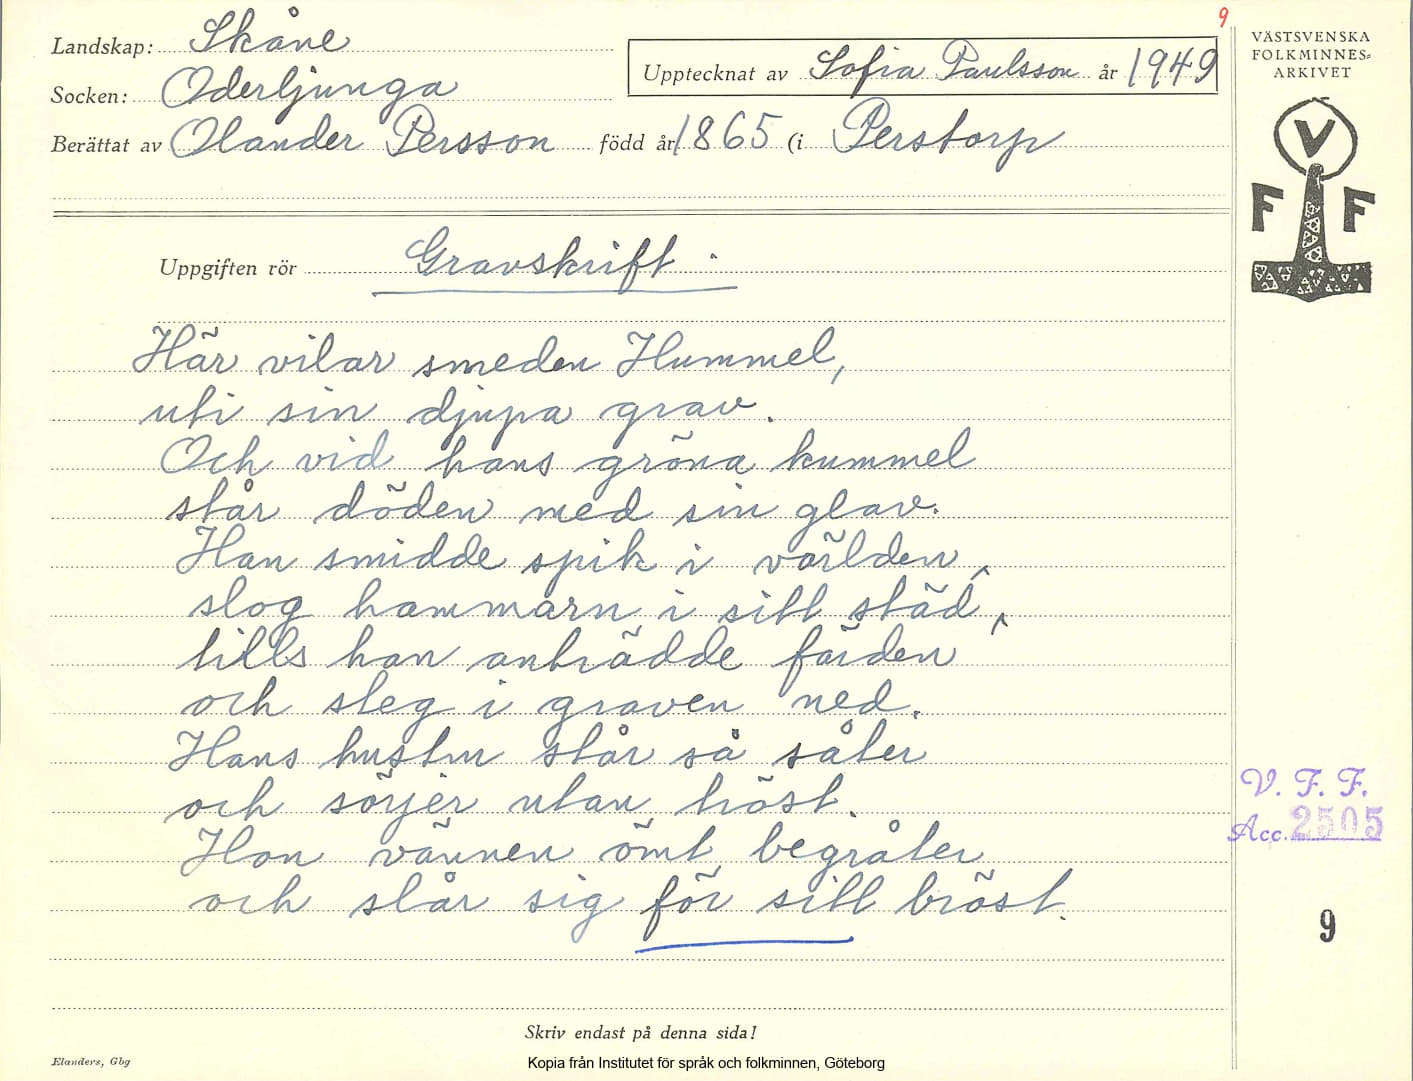 9
Landskap: Skåne
Socken: Oderljunga
Upptecknat av Sofia Paulsson år 1949
Berättat av Olander Persson född år 1865 (i Perstorp
Uppgiften rör Gravskrift.
Här vilar smeden Hummel,
uti sin djupa grav.
Och vid hans gröna kummel
står döden med sin glav.
Han smidde spik i världen,
slog hammarn i sitt städ,
tills han anträdde färden
och steg i graven ned.
Hans hustru står så såter
och sörjer utan tröst.
Hon vännen ömt begråter
och slår sig för sitt bröst.
Skriv endast på denna sida!
Elanders, Gbg
Kopia från Institutet för språk och folkminnen, Göteborg
VÄSTSVENSKA
FOLKMINNES-
ARKIVET
V
F F
V. F. F.
Acc. 2505
9